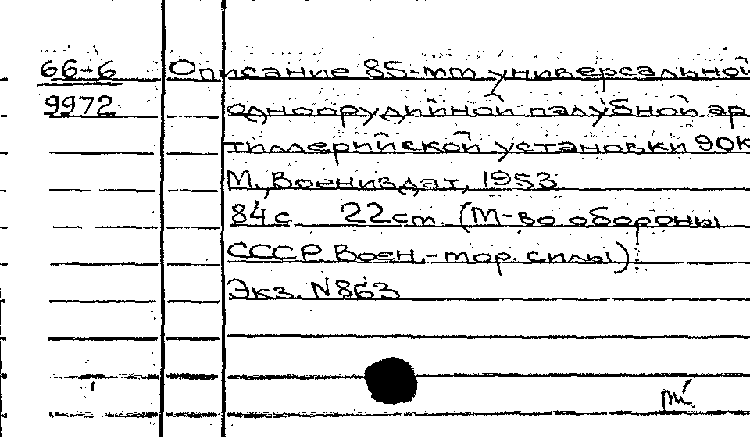 66-6 Описание 85-мм универсальной
9972 однооорудийной палубной ар
тиллерийской установки 90К
М., Воениздат, 1953
84 с 22 см (М-во обороны
СССР. Воен.-мор. силы)
Экз. N863